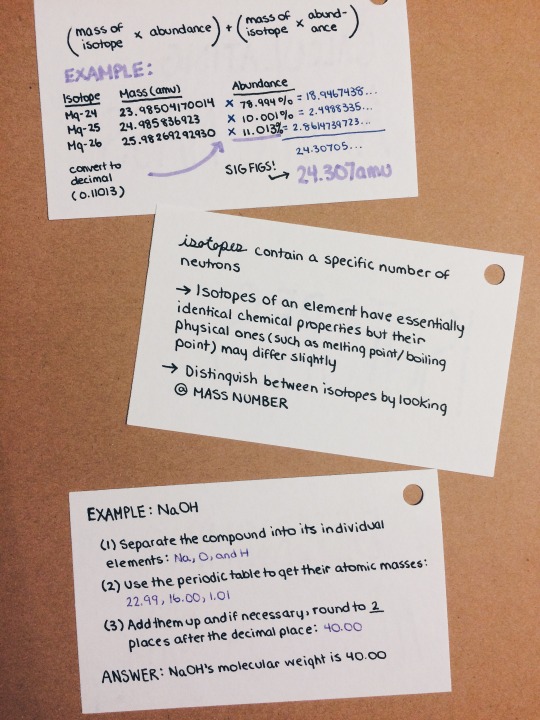 (mass of isotope x abundance) + (mass of isotope x abund-ance)
EXAMPLE:
Isotope Mass (amu) Abundance
Mg-24 23.98504170014 x 78.994% = 18.9467438...
Mg-25 24.985836923 x 10.001% = 2.4988335...
Mg-26 25.98269292930 x 11.013% = 2.8614739723...
24.30705...
convert to
decimal
(0.11013)
SIG FIGS! → 24.307amu
isotopes contain a specific number of
neutrons
→ Isotopes of an element have essentially
identical chemical properties but their
physical ones (such as melting point/boiling
point) may differ slightly
→ Distinguish between isotopes by looking
@ MASS NUMBER
EXAMPLE: NaOH
(1) Separate the compound into its individual
elements: Na, O, and H
(2) Use the periodic table to get their atomic masses:
22.99, 16.00, 1.01
(3) Add them up and if necessary, round to 2
places after the decimal place: 40.00
ANSWER: NaOH's molecular weight is 40.00